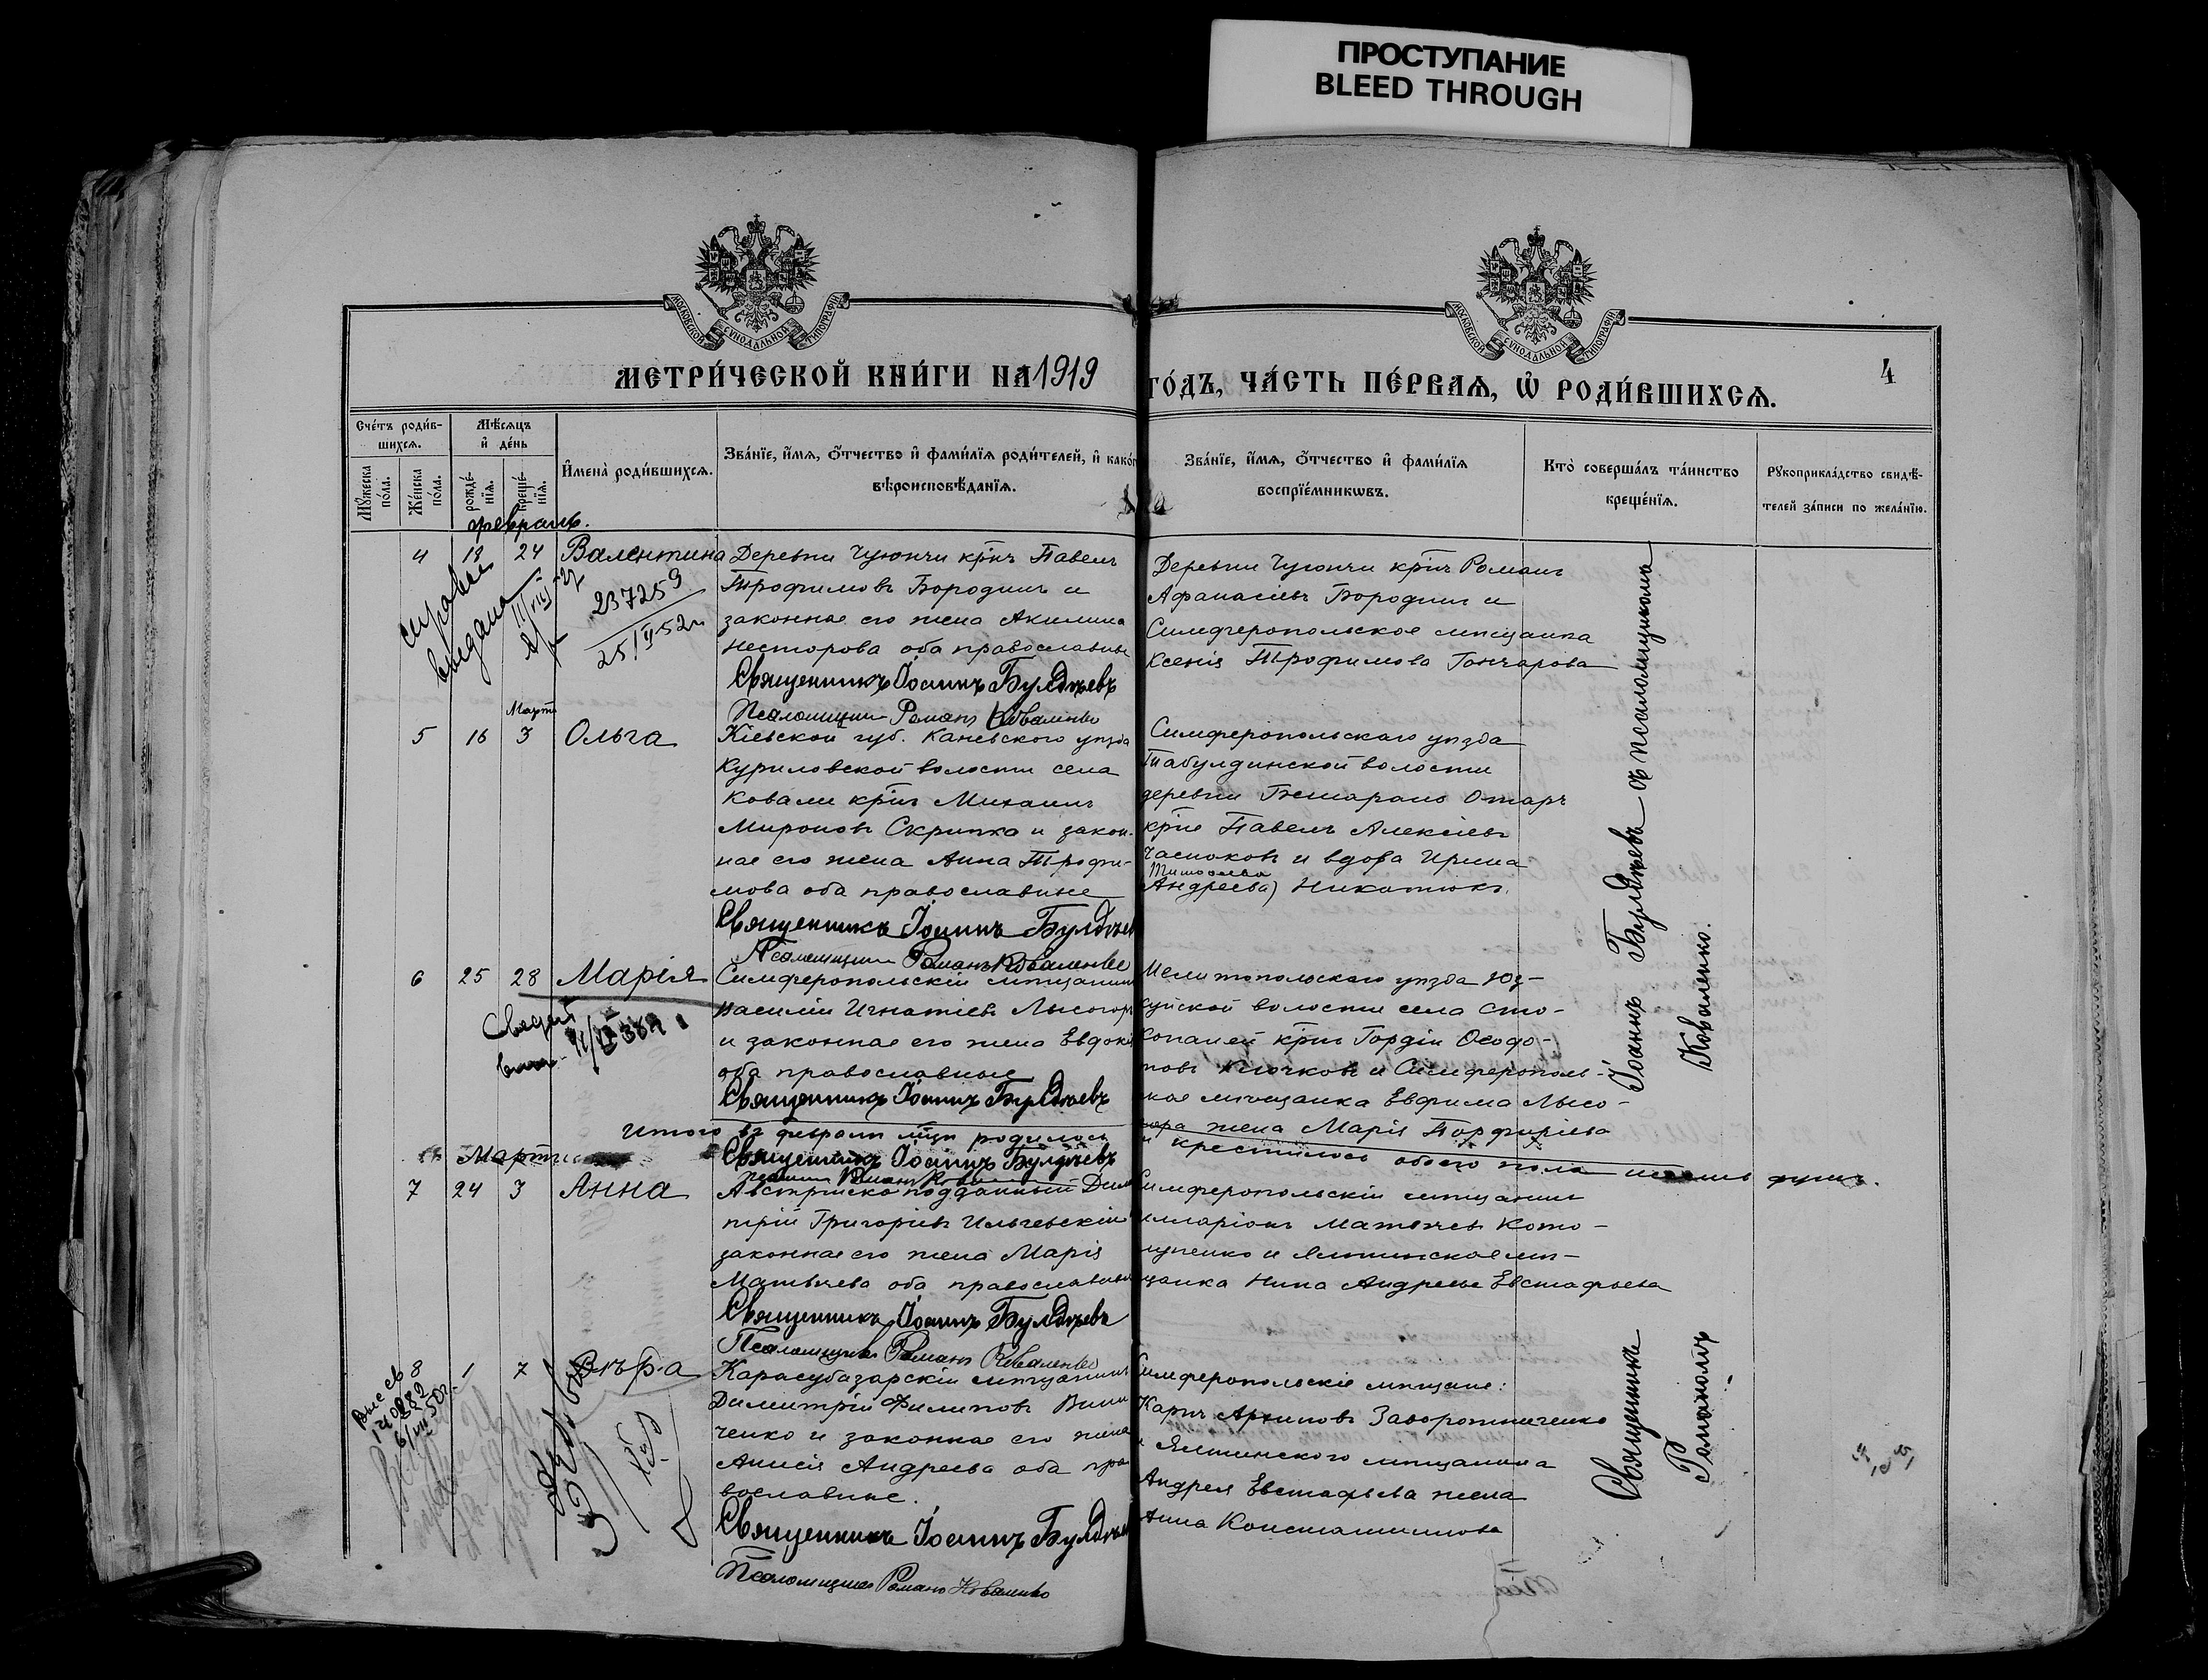 ПРОСТУПАНИЕ
BLEED THROUGH
МОСКОВСКОЙ СѴНОДАЛЬНОЙ ТИПОГРАФІИ
МОСКОВСКОЙ СѴНОДАЛЬНОЙ ТИПОГРАФІИ
МЕТРИ́ЧЕСКОЙ КНИ́ГИ НА 1919
ГО́ДЪ, ЧА́СТЬ ПЕ́РВАѦ, Ѡ҆ РОДИ́ВШИХСѦ.
4
Сче́тъ роди́в-
шихсѧ.
Мꙋ́жеска
по́ла.
Же́нска
по́ла.
Мѣ́сѧцъ
и҆ де́нь
рожде́-
нїѧ.
креще́-
нїѧ.
И҆мена̀ роди́вшихсѧ.
Зва́нїе, и҆́мѧ, ѻ҆́тчество и҆ фами́лїѧ роди́телей, и҆ како́г
вѣроисповѣ́данїѧ.
Зва́нїе, и҆́мѧ, ѻ҆́тчество и҆ фами́лїѧ
воспрїе́мникωвъ.
Кто̀ соверша́лъ та́инство
креще́нїѧ.
Рꙋкоприкла́дство свидѣ́-
телей за́писи по жела́нїю.
февраль.
4 13 24 Валентина Деревни Чуюнчи крнъ Павелъ
Трофимовъ Бородинъ и
законная его жена Акилина
Несторова оба православные
Священникъ Іоаннъ Булдѣевъ
Псаломщикъ Романъ Коваленко
Деревни Чуюнчи крнъ Романъ
Афанасіевъ Бородинъ и
Симферопольская мѣщанка
Ксенія Трофимова Гончарова
справка
выдана
237259
25/II-52г
Мартъ
5 16 3 Ольга Кіевской губ. Каневского уѣзда
Куриловской волости села
Ковали крнъ Михаилъ
Мироновъ Скрипка и закон-
ная его жена Анна Трофи-
мова оба православные
Священникъ Іоаннъ Булдѣев
Псаломщикъ Романъ Коваленко
Симферопольскаго уѣзда
Табулдинской волости
деревни Бешарань Отаръ
крнъ Павелъ Алексіевъ
и вдова Ирина
Андреева)
6 25 28 Марія Симферопольскій мѣщанинъ
Василій Игнатіевъ Лысогор
и законная его жена Евдокі
оба православные
Священникъ Іоаннъ Булдѣевъ
Мелитопольскаго уѣзда Юз-
куйской волости села Сто-
копаней крнъ Гордій Ѳеодо-
товъ Клочковъ и Симферополь-
ская мѣщанка Евфима Лысо-
гора жена Марія Порфиріева
Итого въ февралѣ мцѣ родилось
и крестилось обоего пола душъ.
Священникъ Іоаннъ Булдѣевъ
Мартъ
7 24 3 Анна Австрійско подданный Дим
трій Григоріевъ Ильчевскій
законная его жена Марія
Матвѣева оба православные
Священникъ Іоаннъ Булдѣевъ
Псаломщикъ Романъ Коваленко
Симферопольскій мѣщанинъ
Илларіонъ Матвѣевъ Кото-
лупенко и Ялтинская мѣ-
щанка Нина Андреева Евстафьева
8 1 7 Вѣра Карасубазарскій мѣщанинъ
Димитрій Филиповъ Вини
ченко и законная его жена
Анисія Андреева оба пра
вославные.
Священникъ Іоаннъ Булдѣев
Псаломщикъ Романъ Коваленко
Симферопольскіе мѣщане:
Карпъ Архиповъ Заворотниченко
и Ялтинского мѣщанина
Андрея Евстафьева жена
Анна Константинова
Іоаннъ Булдѣевъ съ псаломщикомъ
Коваленко.
Священникъ
Романомъ